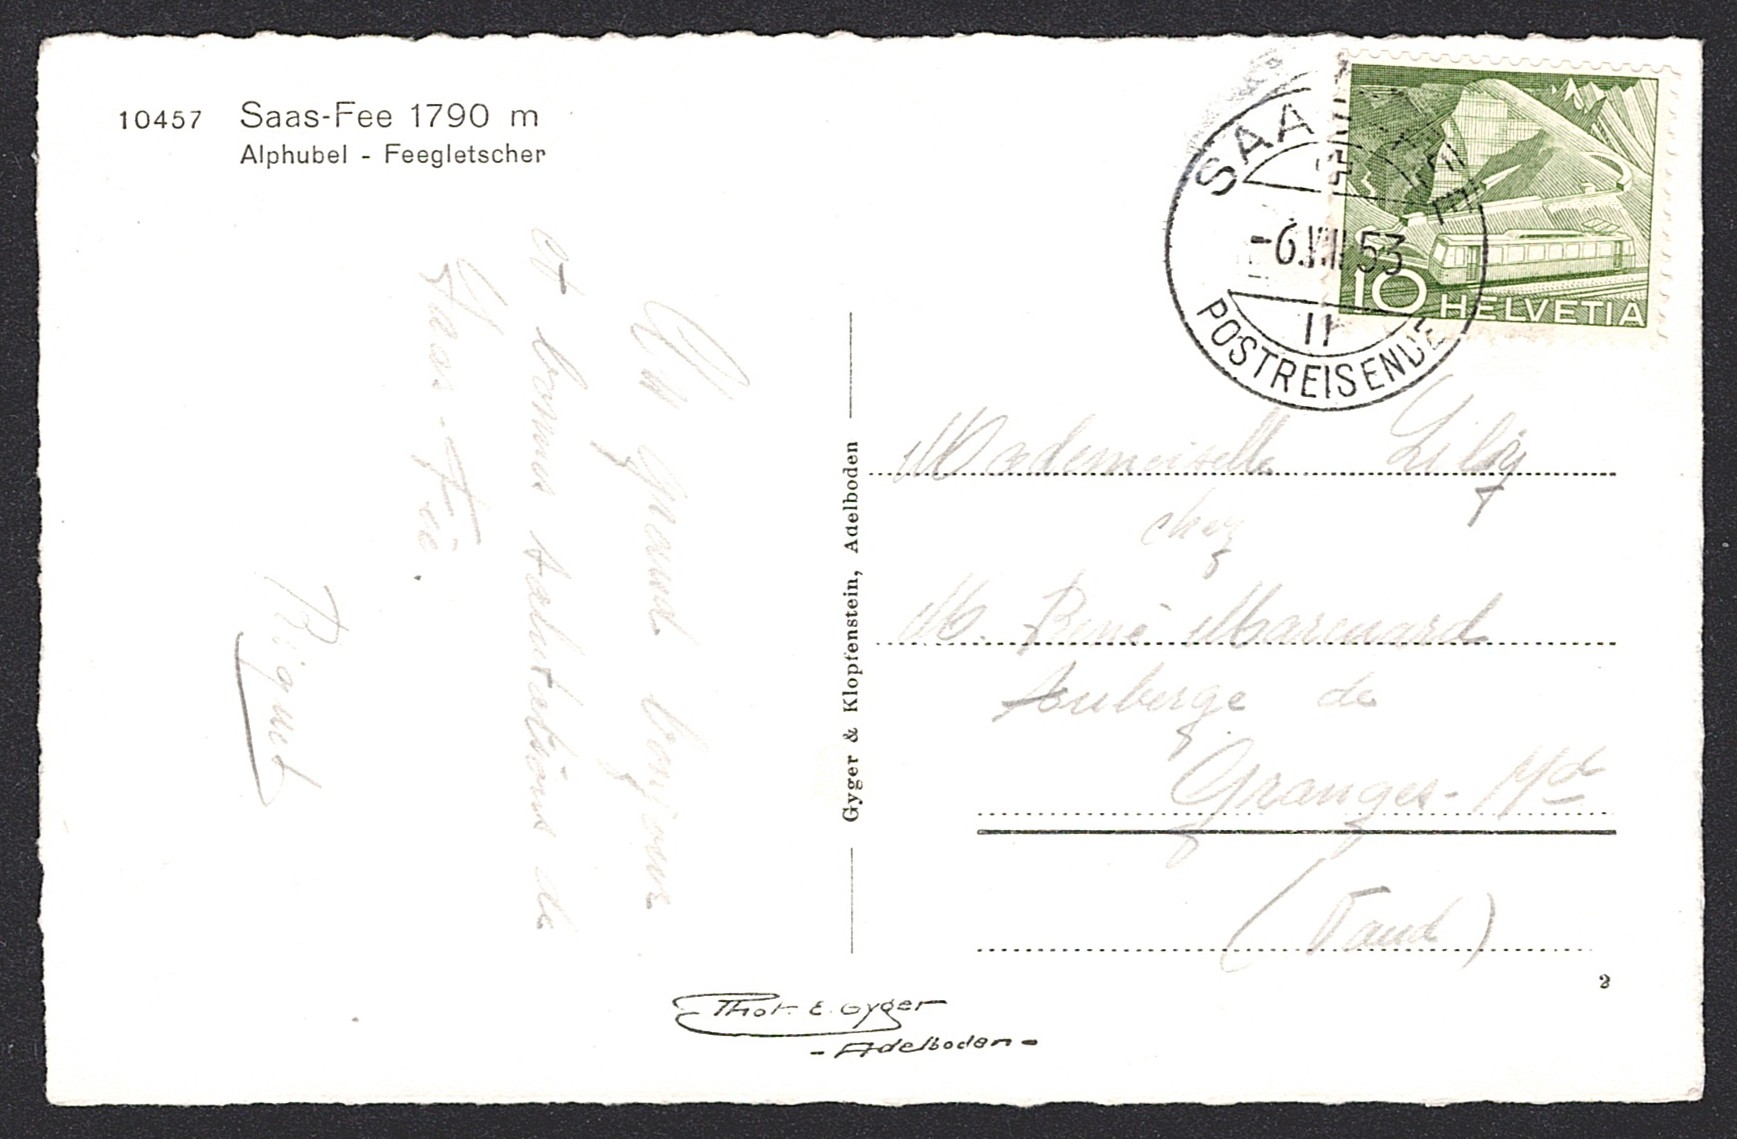 10457 Saas-Fee 1790 m
Alphubel - Feegletscher
SAAS-FEE
-6.VIII.53
11
POSTREISENDE
10 HELVETIA
Un grand bonjour
et bonnes salutations de
Saas-Fée.
Gyger & Klopfenstein, Adelboden
Mademoiselle Lily
chez
M. René Marcuard
Auberge de
Granges-Md
(Vaud)
2
Phot. E. Gyger
- Adelboden -